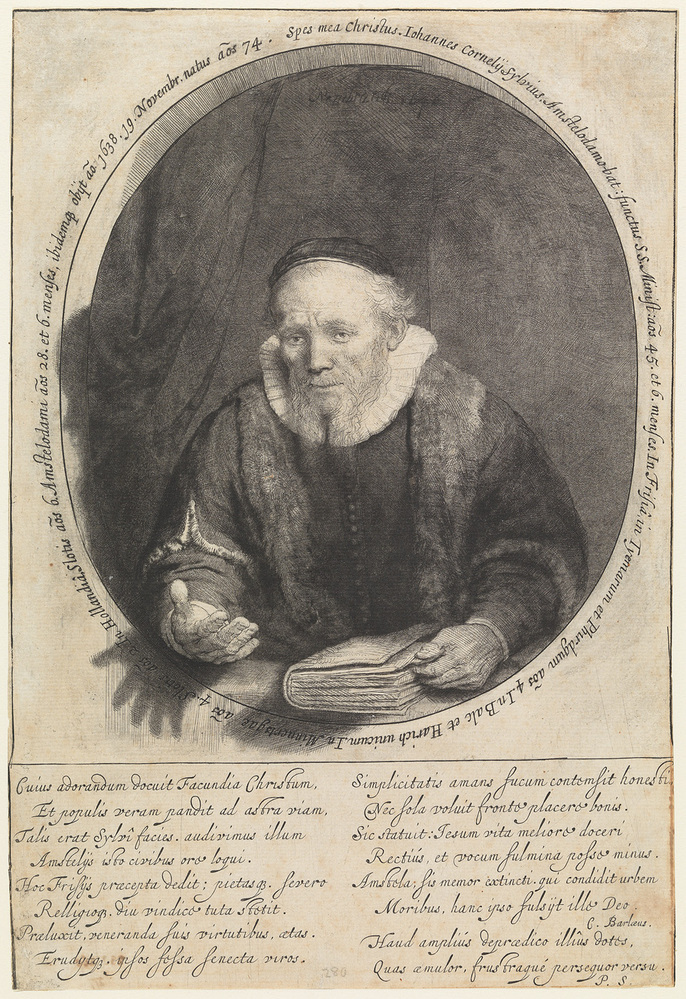 Spes mea Christus. Iohannes Cornelij Sylvius, Amstelodamobat: functus S.S. Minist: aōs 45. et 6. menses. In Frisiâ, in Tyemarum et Phirdgum aōs 4. In Balc et Harich unicum. In Minnertsgae aōs 4. Slotis aōs 6. Amstelodami aōs 28. et 6. menses, ibidemq obijt aō. 1638. 19. Novembr. natus aōs 74.
Rembrandt
Cuius adorandum docuit Facundia Christum,
Et populis veram pandit ad astra viam,
Talis erat Sylvî facies. audivimus illum
Amstelijs isto civibus ore loqui.
Hoc Frisijs præcepta dedit; pietasq. severo
Relligioq. diu vindice tuta stetit.
Præluxit, veneranda suis virtutibus, ætas.
Erudytq. ipsos fessa senecta viros.
Simplicitatis amans fucum contemsit honesti,
Nec sola voluit fronte placere bonis.
Sic statuit: Iesum vita meliore doceri
Rectiùs, et vocum fulmina posse minus.
Amstela, sis memor extincti. qui condidit urbem
Moribus, hanc ipso fulsijt ille Deo.
C. Barlæus.
Haud ampliús deprædico illîus dotes,
Quas æmulor, frustraque persequor versu.
P. S.
280